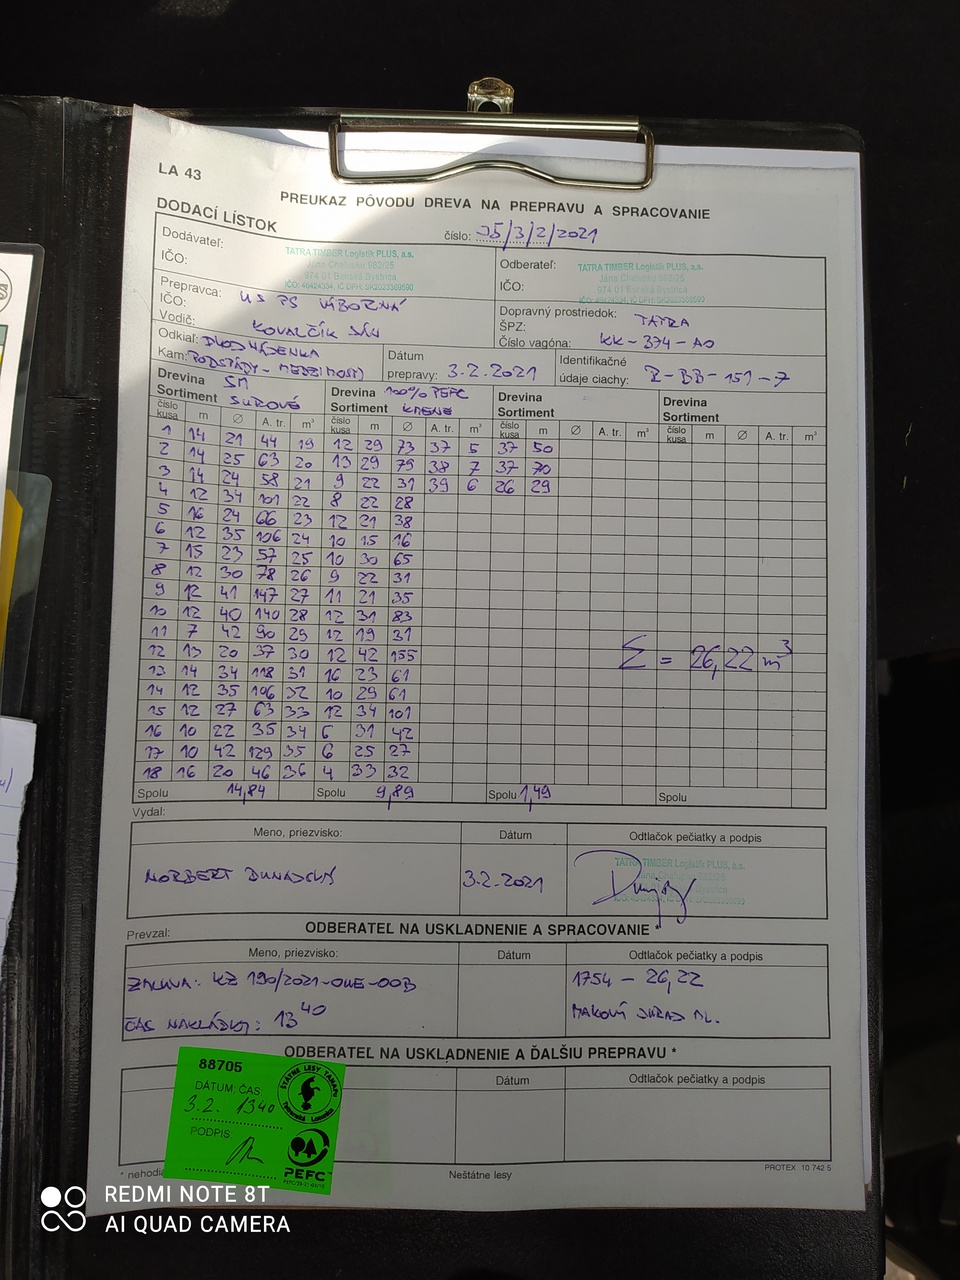 LA 43
PREUKAZ PÔVODU DREVA NA PREPRAVU A SPRACOVANIE
DODACÍ LÍSTOK
číslo: 05/3/2/2021
Dodávateľ:
IČO:
TATRA TIMBER Logistik PLUS, a.s.
974 01 Banská Bystrica
Odberateľ:
IČO:
TATRA TIMBER Logistik PLUS, a.s.
974 01 Banská Bystrica
Prepravca:
IČO:
Vodič: KOVALČÍK JÁN
Dopravný prostriedok: TATRA
ŠPZ:
Číslo vagóna: KK-374-AO
Odkiaľ:
Kam: PODSTÁDY - MEDZIMOSTÍ
Dátum
prepravy: 3.2.2021
Identifikačné
údaje ciachy: R-BB-151-7
Drevina SM
Sortiment SUROVÉ
Drevina 100% PEFC
Sortiment
Drevina
Sortiment
Drevina
Sortiment
číslo kusa m Ø A. tr. m³ číslo kusa m Ø A. tr. m³ číslo kusa m Ø A. tr. m³ číslo kusa m Ø A. tr. m³
1 14 21 44 19 12 29 73 37 5 37 50
2 14 25 63 20 13 29 79 38 7 37 70
3 14 24 58 21 9 22 31 39 6 26 29
4 12 34 101 22 8 22 28
5 16 24 66 23 12 21 38
6 12 35 106 24 10 15 16
7 15 23 57 25 10 30 65
8 12 30 78 26 9 22 31
9 12 41 147 27 11 21 35
10 12 40 140 28 12 31 83
11 7 42 90 29 12 19 31
12 13 20 37 30 12 42 155
13 14 34 118 31 16 23 61
14 12 35 106 32 10 29 61
15 12 27 63 33 12 34 101
16 10 22 35 34 6 31 42
17 10 42 129 35 6 25 27
18 16 20 46 36 4 33 32
Σ = 26,22 m³
Spolu 14,84 Spolu 9,89 Spolu 1,49 Spolu
Vydal:
Meno, priezvisko: Dátum Odtlačok pečiatky a podpis
NORBERT 3.2.2021
TATRA TIMBER Logistik PLUS, a.s.
Prevzal:
ODBERATEĽ NA USKLADNENIE A SPRACOVANIE *
Meno, priezvisko: Dátum Odtlačok pečiatky a podpis
KZ 190/2021-OUE-OOB
1754 - 26,22
ČAS NAKLÁDKY: 13 40
ODBERATEĽ NA USKLADNENIE A ĎALŠIU PREPRAVU *
Dátum Odtlačok pečiatky a podpis
88705
DÁTUM; ČAS:
3.2. 1340
PODPIS
ŠTÁTNE LESY TANAPU
Tatranská Lomnica
PEFC
* nehodi
Neštátne lesy
PROTEX 10 742 5
REDMI NOTE 8T
AI QUAD CAMERA